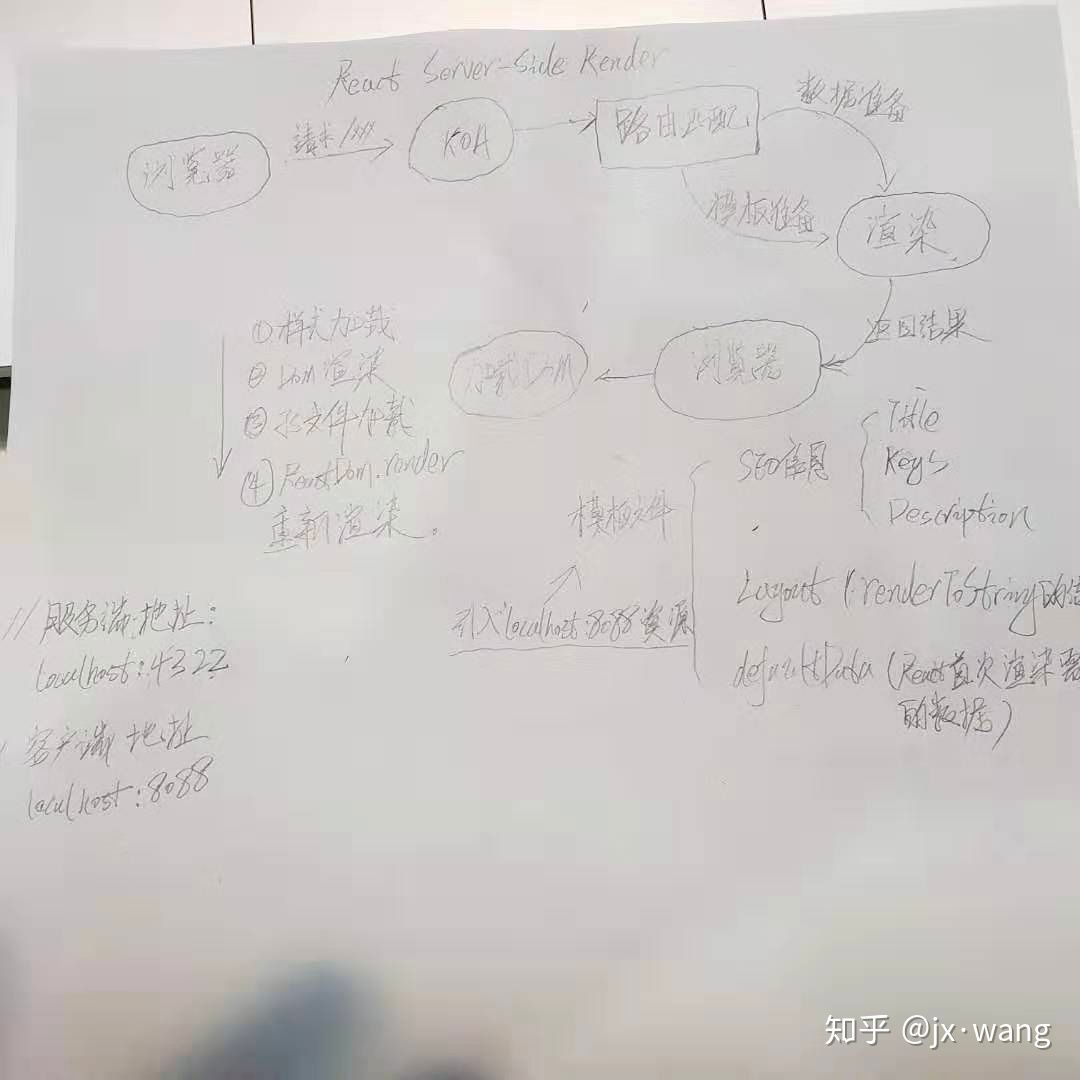 React Server-Side Render
浏览器
请求/xxx
KOA
路由匹配
数据准备
模板准备
渲染
返回结果
浏览器
加载Dom
①样式加载
②Dom渲染
③js文件加载
④ReactDom.render
重新渲染。
模板文件
引入localhost:8088资源
SEO信息
Title
Keys
Description
Layout (renderToString的
defaultData (React首次渲染需
的数据)
//服务端地址:
localhost:4322
客户端地址
localhost:8088
知乎 @jx·wang